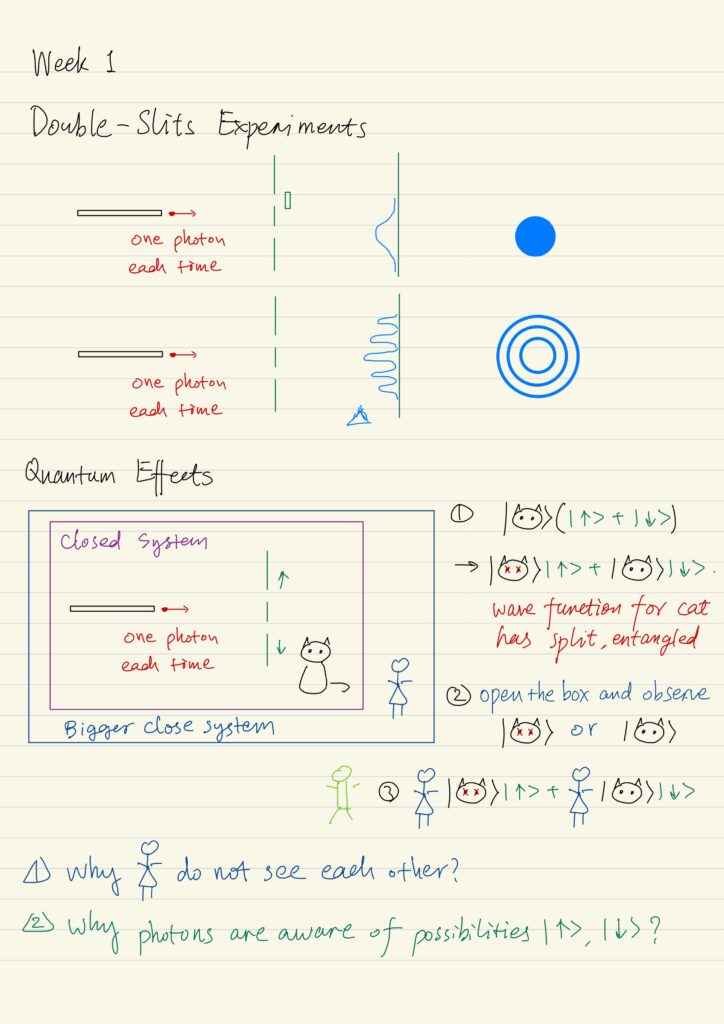 Week 1
Double-Slits Experiments
one photon
each time
one photon
each time
Quantum Effects
Closed System
one photon
each time
Bigger close system
① | ⟩(|↑> + |↓>)
→ | ⟩|↑> + | ⟩|↓>.
wave function for cat
has split, entangled
② open the box and observe
| ⟩ or | ⟩
③ | ⟩|↑> + | ⟩|↓>
① why do not see each other?
② why photons are aware of possibilities |↑>, |↓>?